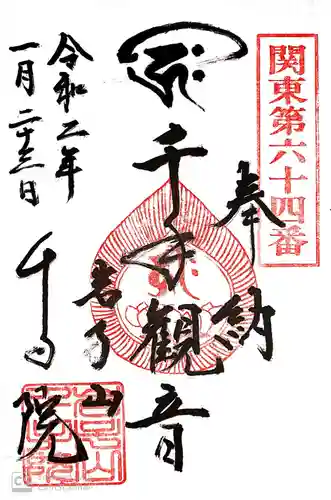 関東第六十四番
奉納
千手觀音
山
令和二年
一月二十三日
千手院